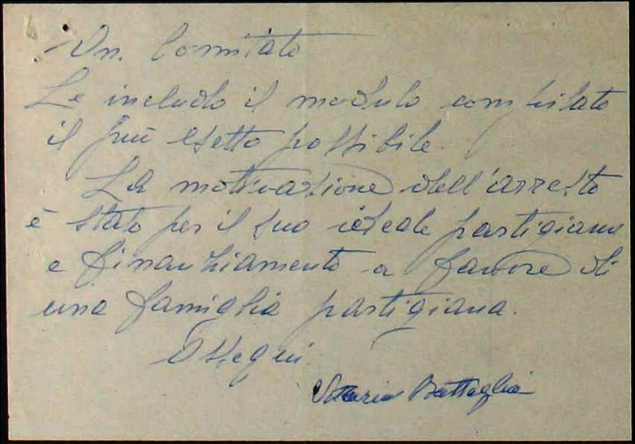 On. Comitato
Le includo il modulo compilato
il più esatto possibile.
La motivazione dell'arresto
è stato per il suo ideale partigiano
e finanziamento a favore di
una famiglia partigiana.
Ossequi
Battaglia